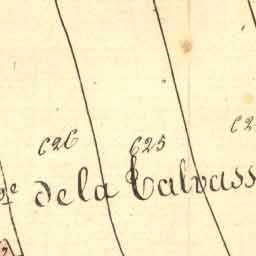 626 625
de la Calvass